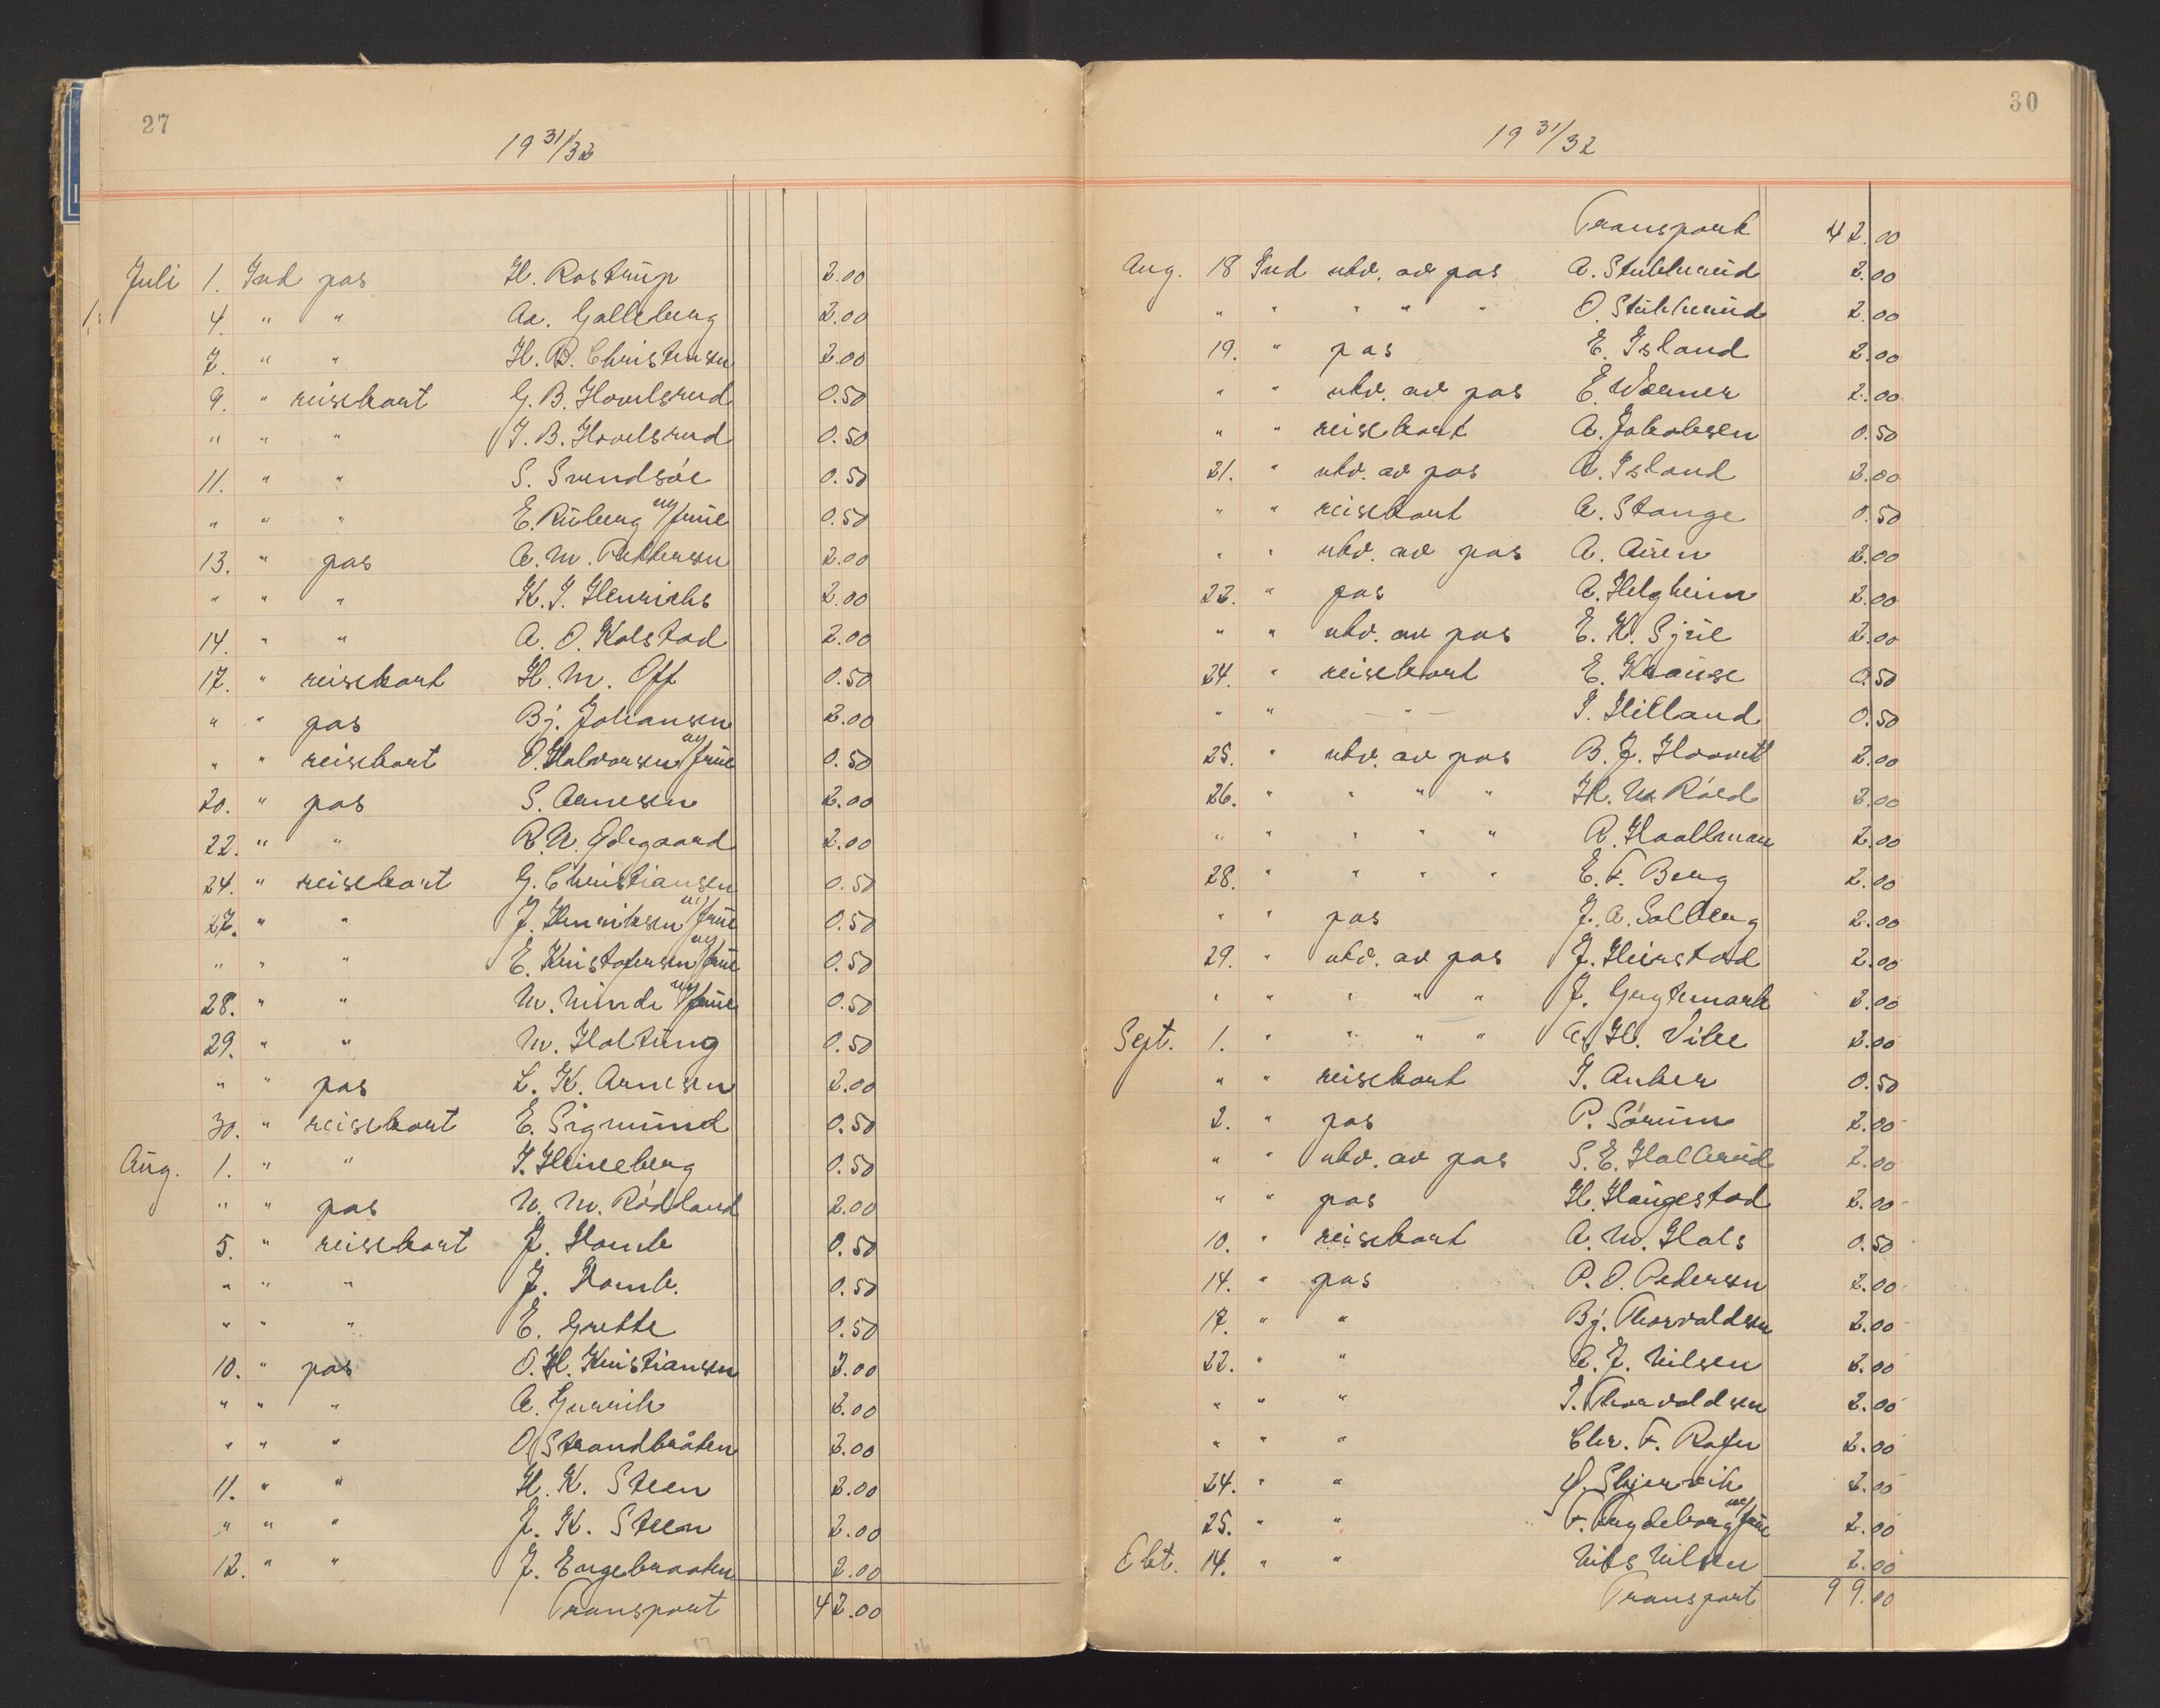 27
19 31/32
Juli 1. Ind pas H. Rostrup 2.00
1. 4. " " Aa. Galleberg 2.00
7. " " H. B. Christensen 2.00
9. " reisekort G. B. Hovelsrud 0.50
" " " I. B. Hovelsrud 0.50
11. " " S. Svendsøe 0.50
" " " E. Ruberg m/frue 0.50
13. " pas A. M. Pettersen 2.00
" " " K. J. Henrichs 2.00
14. " " A. O. Kolstad 2.00
17. " reisekort H. M. Off 0.50
" " pas Bj. Johansen 2.00
" " reisekort O. Halvorsen m/frue 0.50
20. " pas S. Arnesen 2.00
22. " " R. N. Ødegaard 2.00
24. " reisekort G. Christiansen 0.50
27. " " J. Henriksen m/frue 0.50
" " " E. Kristofersen m/frue 0.50
28. " " M. Minde m/frue 0.50
29. " " M. Holtung 0.50
" " pas L. K. Arnesen 2.00
30. " reisekort E. Sigmund 0.50
Aug. 1. " " I. Heineberg 0.50
" " pas N. M. Rødland 2.00
5. " reisekort J. Homb 0.50
" " " J. Homb. 0.50
" " " E. Grette 0.50
10. " pas O. H. Kristiansen 2.00
" " " A. 2.00
" " " O. Strandbråten 2.00
11. " " H. K. Steen 2.00
" " " J. K. Steen 2.00
12. " " J. Engebraaten 2.00
Transport 42.00
30
19 31/32
Transport 42.00
Aug. 18 Ind utv. av pas A. Stuhlmud 2.00
" " " " " O. Stuhlmud 2.00
19. " pas E. Island 2.00
" " utv. av pas E. Werner 2.00
" " reisekort A. Jakobsen 0.50
21. " utv. av pas A. Island 2.00
" " reisekort A. Stange 0.50
" " utv. av pas A. Auen 2.00
22. " pas A. Helgheim 2.00
" " utv. av pas E. K. Sjue 2.00
24. " reisekort E. Krause 0.50
" " " I. Hilland 0.50
25. " utv. av pas B. J. 2.00
26. " " " " H. M. Røed 2.00
" " " " " R. Haallman 2.00
28. " " " " E. F. Berg 2.00
" " pas J. A. Solberg 2.00
29. " utv. av pas J. Heirstad 2.00
" " " " " J. 2.00
Sept. 1. " " " " A. H. Vibe 2.00
" " reisekort I. Anker 0.50
2. " pas P. Sørum 2.00
" " utv. av pas S. E. Hallerud 2.00
" " pas H. Haugestad 2.00
10. " reisekort A. M. Hals 0.50
14. " pas P. O. Pedersen 2.00
17. " " Bj. Thorvaldsen 2.00
22. " " A. J. Nilsen 2.00
" " " I. Thorvaldsen 2.00
" " " Chr. F. Rafen 2.00
24. " " O. Skjervik 2.00
25. " " F. m/frue 2.00
Okt. 14. " " Nils Nilsen 2.00
Transport 99.00